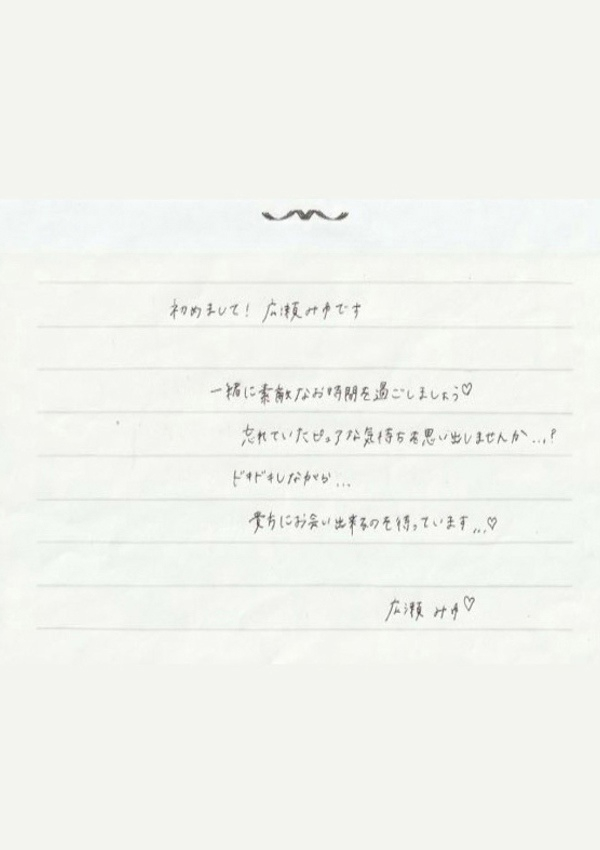 初めまして! 広瀬みゆです
一緒に素敵なお時間を過ごしましょう♡
忘れていたピュアな気持ちを思い出しませんか...?
ドキドキしながら...
貴方にお会い出来るのを待っています...♡
広瀬 みゆ♡